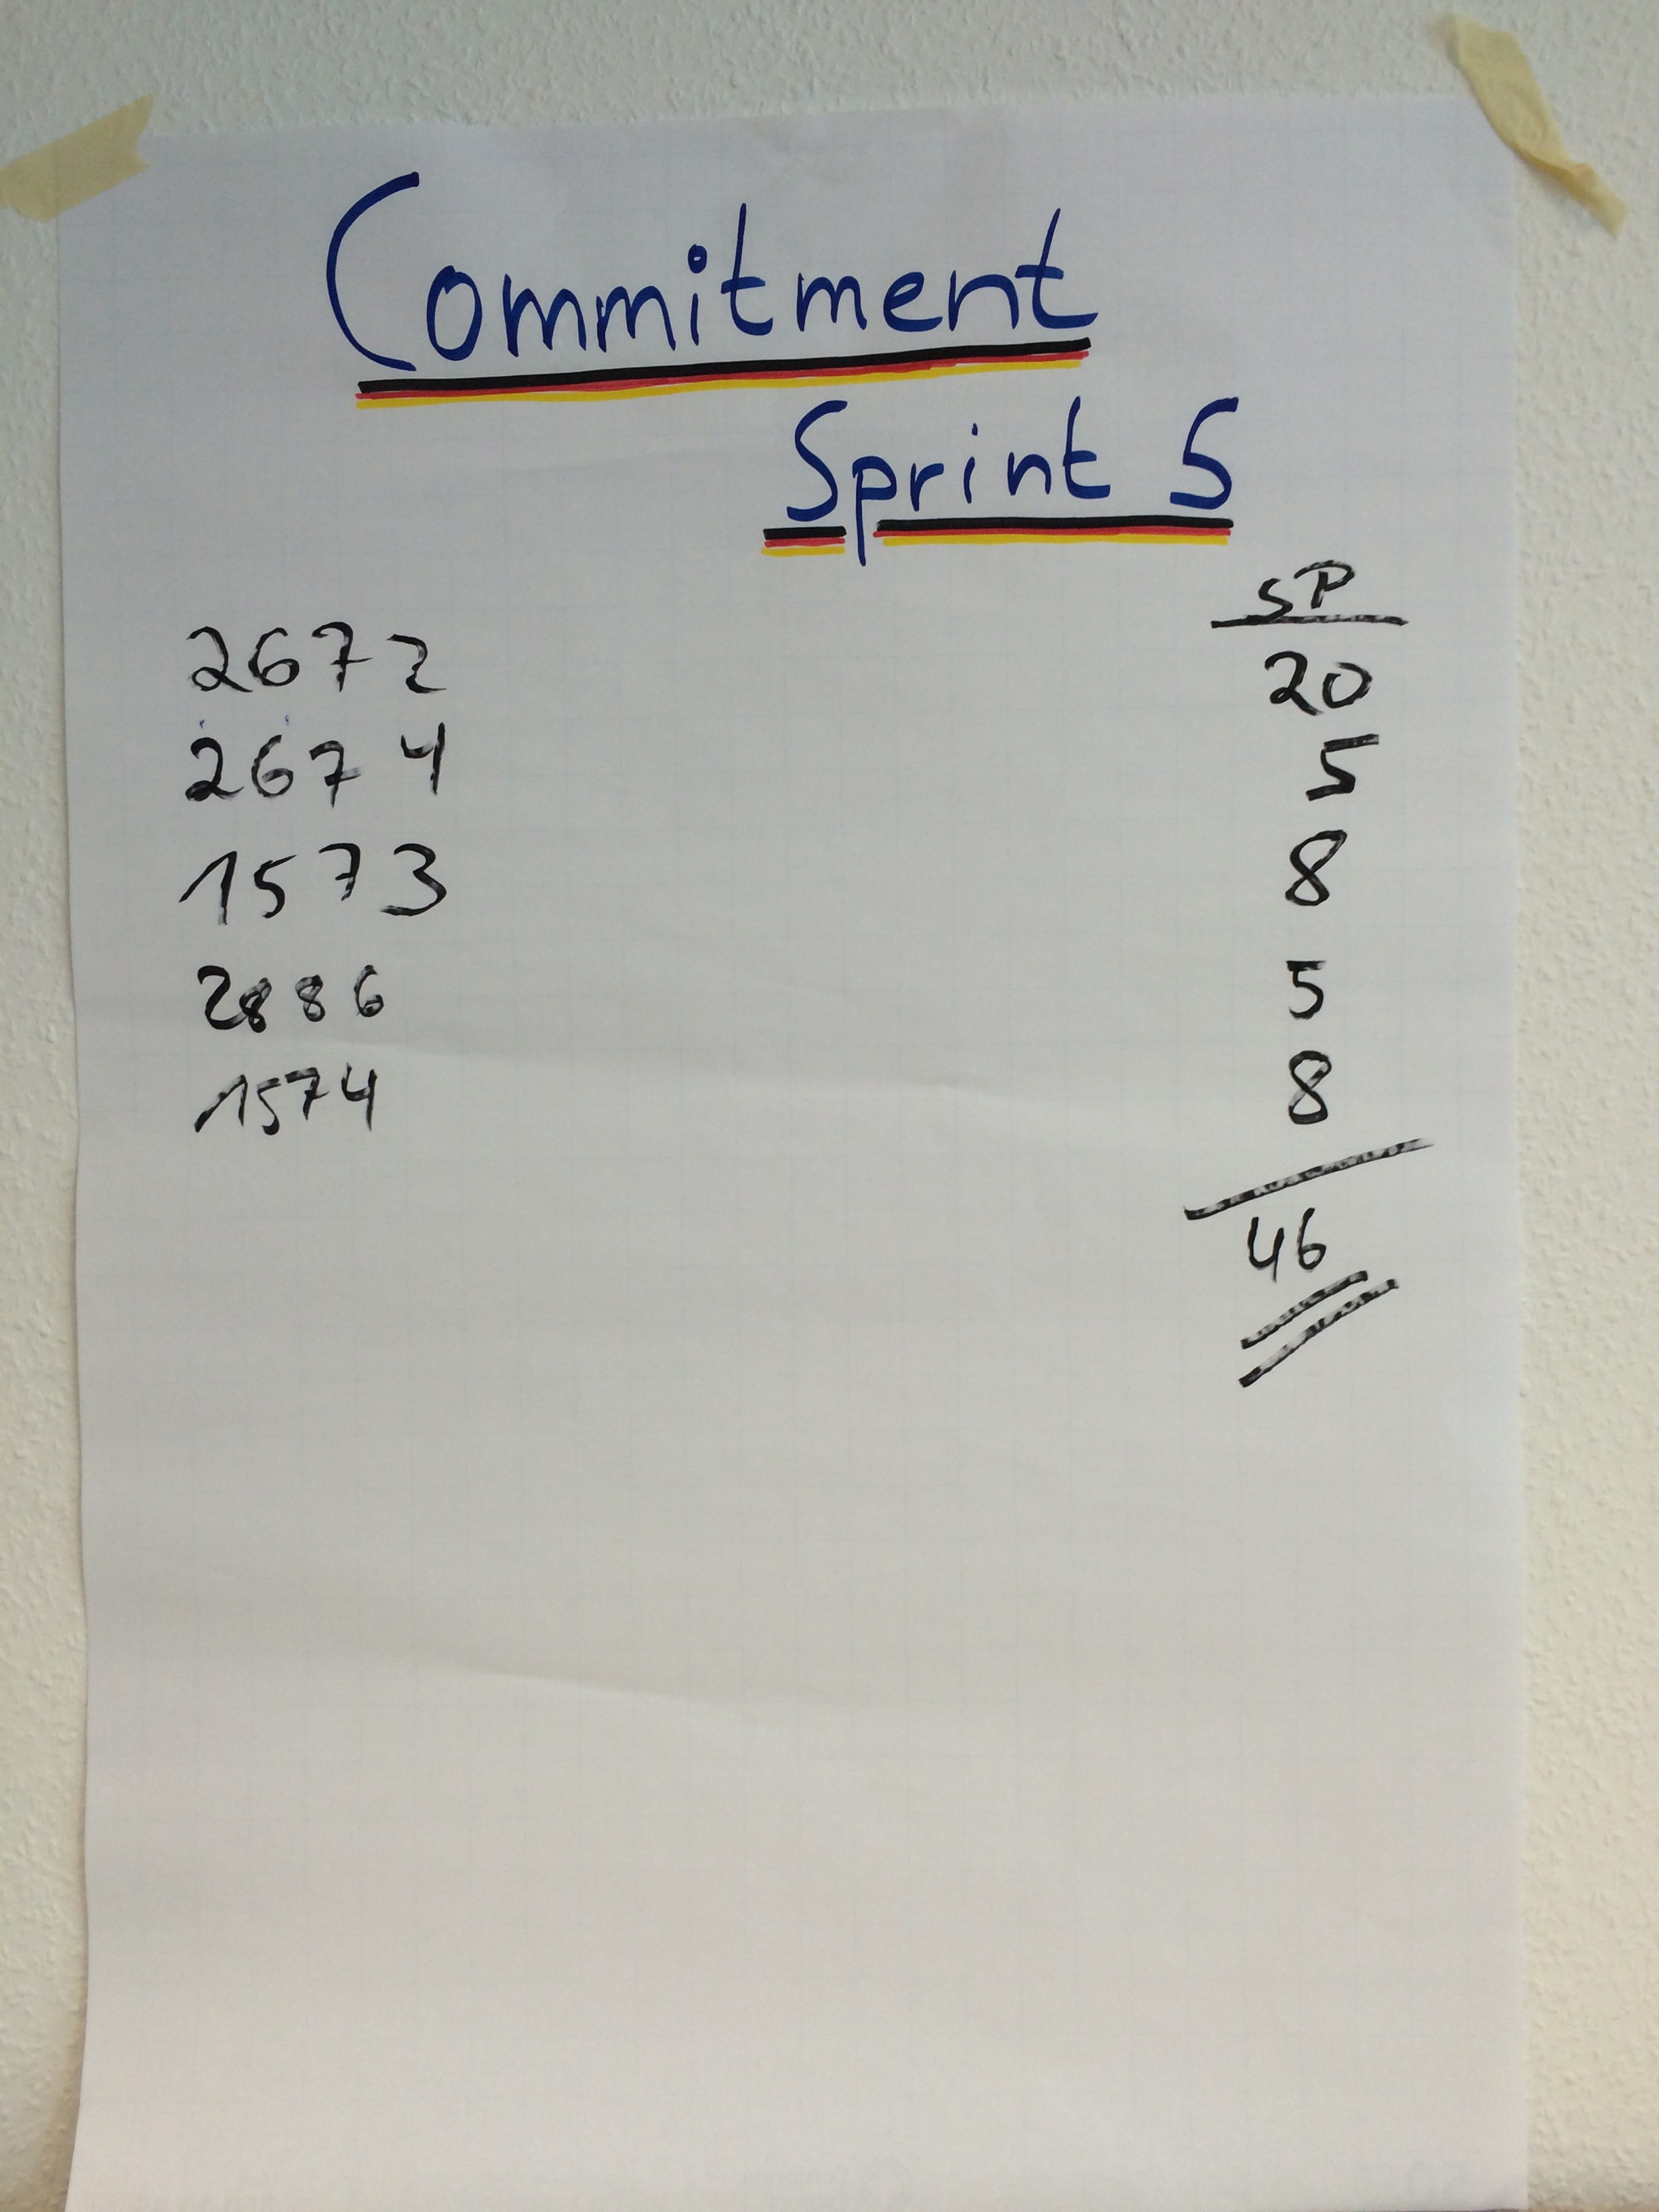 Commitment
Sprint 5
SP
2672 20
2674 5
1573 8
2886 5
1574 8
46